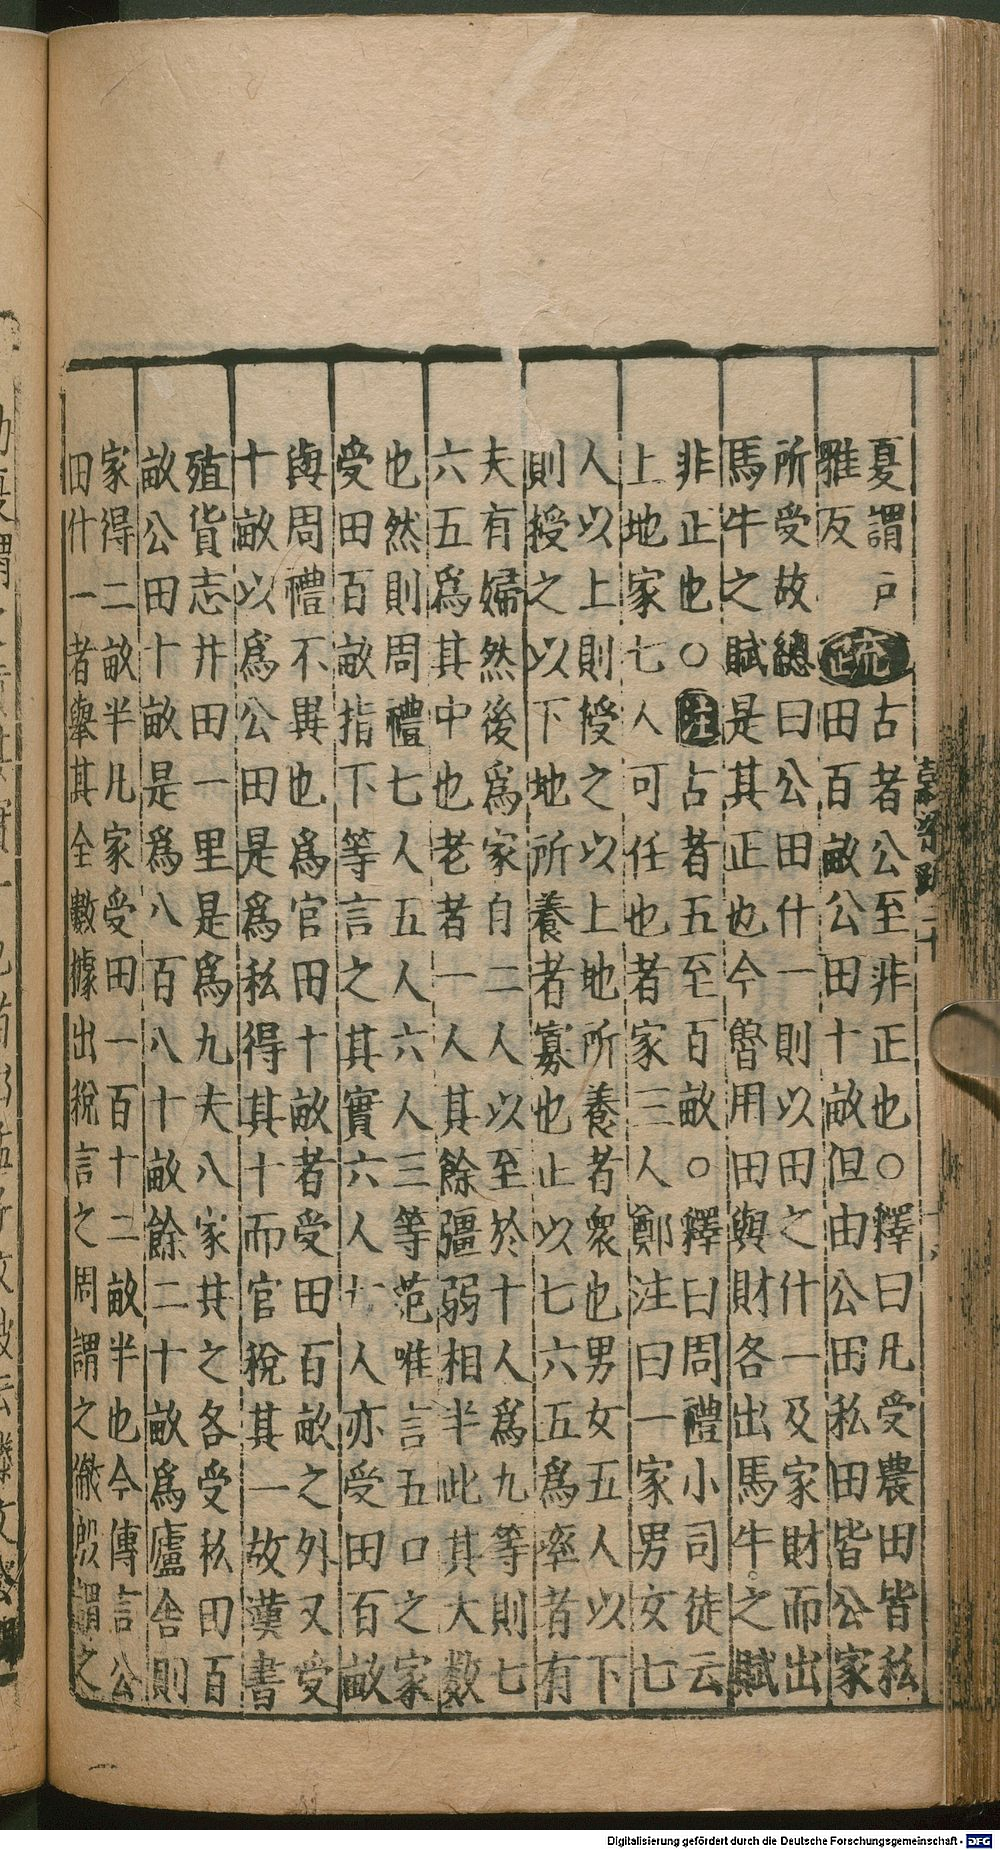 夏謂戶疏古者公至非正也○釋曰凡受農田皆私
雅反田百畝公田十畝但由公田私田皆公家
所受故總曰公田什一則以田之什一及家財而出
馬牛之賦是其正也今魯用田與財各出馬牛之賦
非正也○註占者五至百畝○釋曰周禮小司徒云
上地家七人可任也者家三人鄭注曰一家男女七
人以上則授之以上地所養者衆也男女五人以下
則授之以下地所養者寡也止以七六五爲率者有
夫有婦然後爲家自二人以至於十人爲九等則七
六五爲其中也老者一人其餘彊弱相半此其大數
也然則周禮七人五人六人三等范唯言五口之家
受田百畝指下等言之其實六人七人亦受田百畝
與周禮不異也爲官田十畝者受田百畝之外又受
十畝以爲公田是爲私得其十而官稅其一故漢書
殖貨志井田一里是爲九夫八家共之各受私田百
畝公田十畝是爲八百八十畝餘二十畝爲廬舍則
家得二畝半凡家受田一百十二畝半也今傳言公
田什一者舉其全數據出稅言之周謂之徹殷謂之
Digitalisierung gefördert durch die Deutsche Forschungsgemeinschaft - DFG